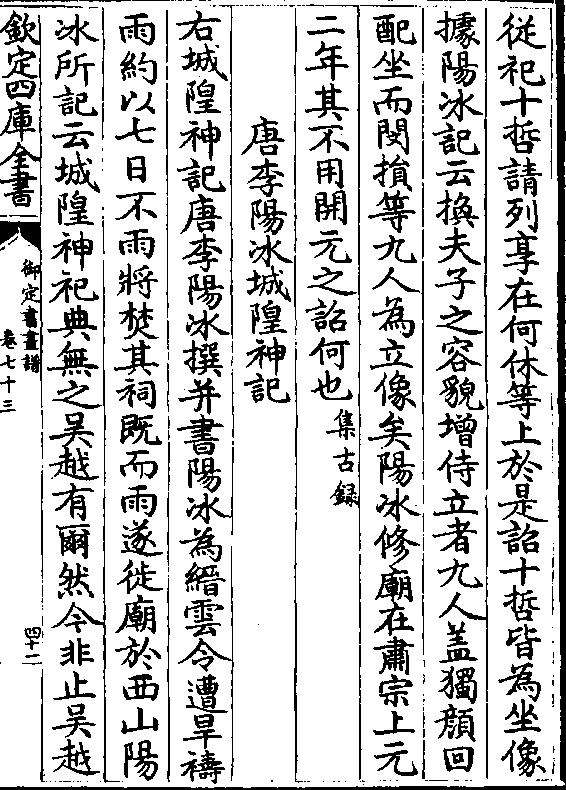 從祀十哲請列享在何休等上於是詔十哲皆為坐像
據陽冰記云換夫子之容貌增侍立者九人蓋獨顔回
配坐而閔損等九人為立像矣陽冰修廟在肅宗上元
二年其不用開元之詔何也集古録
唐李陽冰城隍神記
右城隍神記唐李陽冰撰并書陽冰為縉雲令遭旱禱
雨約以七日不雨將焚其祠既而雨遂徙廟於西山陽
冰所記云城隍神祀典無之吳越有爾然今非止吳越
欽定四庫全書
御定書畫譜
卷七十三
四十二